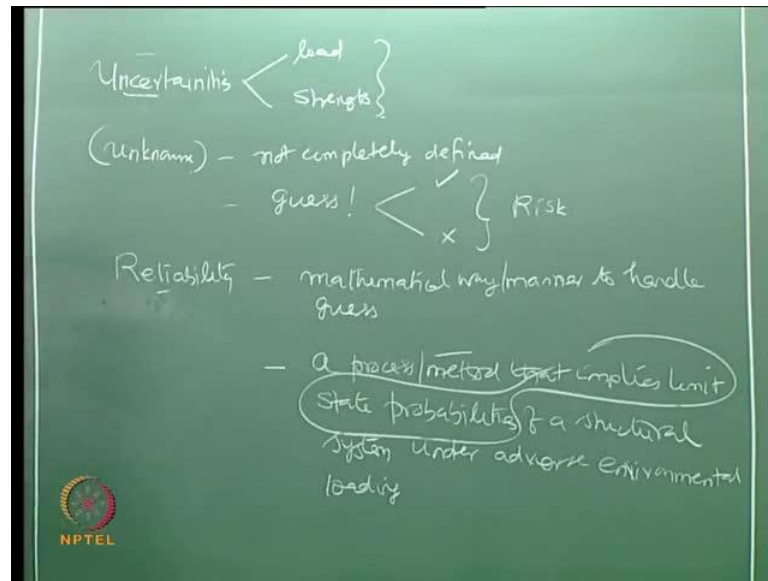 load
Uncertainitis
Strengts
(Unknown) – not completely defined
- guess! ✓
× Risk
Reliability – mathematical way/manner to handle
guess
- a process/method that implies limit
state probabilities of a structural
system under adverse environmental
loading
NPTEL